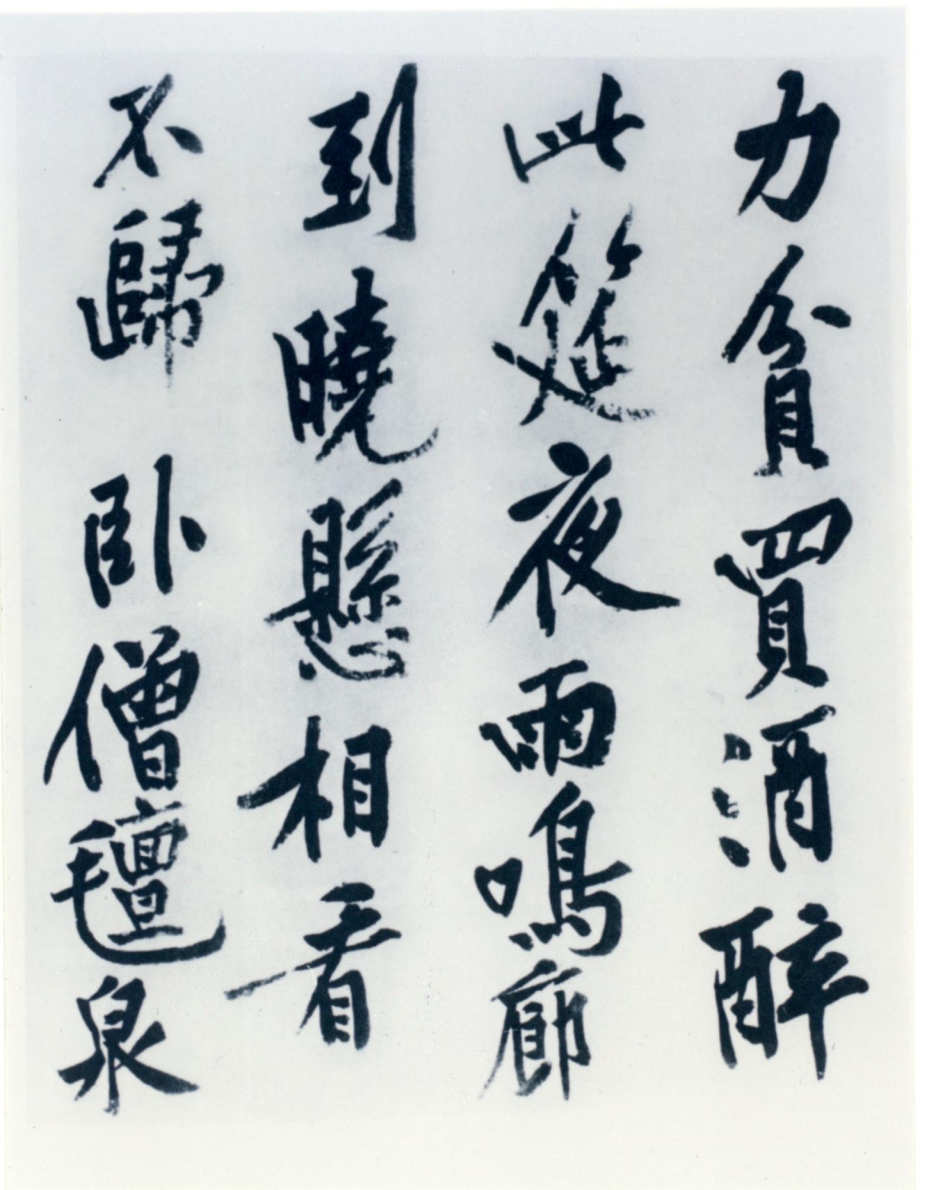 力貧買酒醉
此筵夜雨鳴廊
到曉懸相看
不歸臥僧氊泉